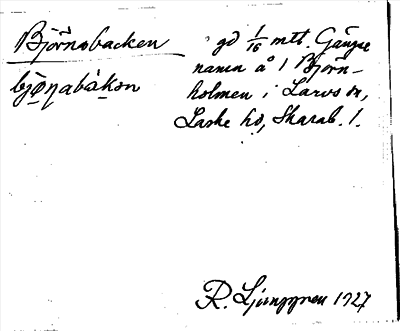 Björnsbacken
bjø̱ŋabàkən
gd 1/16 mtl. Gängse
namn å 1 Björn-
holmen i Larvs sn,
Laske hd, Skarab. l.
R. Ljunggren 1927